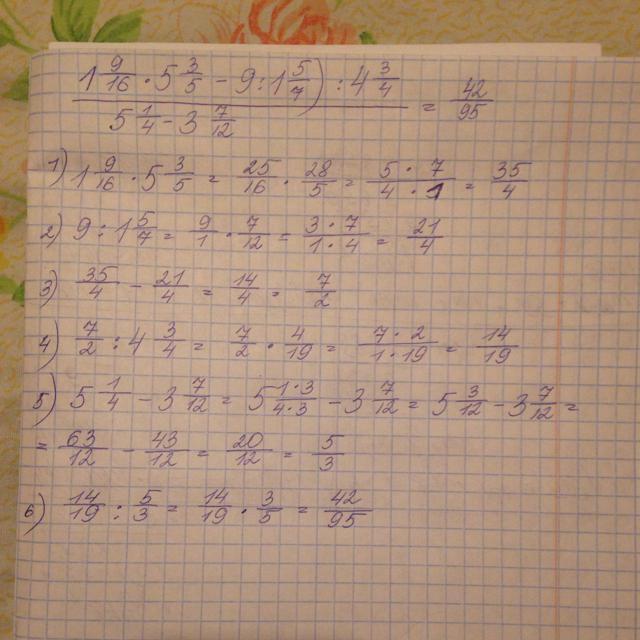 1 9/16 · 5 3/5 - 9 : 1 5/7) : 4 3/4
5 1/4 - 3 7/12
= 42/95
1) 1 9/16 · 5 3/5 = 25/16 · 28/5 = 5 · 7/4 · 1 = 35/4
2) 9 : 1 5/7 = 9/1 · 7/12 = 3 · 7/1 · 4 = 21/4
3) 35/4 - 21/4 = 14/4 = 7/2
4) 7/2 : 4 3/4 = 7/2 · 4/19 = 7 · 2/1 · 19 = 14/19
5) 5 1/4 - 3 7/12 = 5 1 · 3/4 · 3 - 3 7/12 = 5 3/12 - 3 7/12 =
= 63/12 - 43/12 = 20/12 = 5/3
6) 14/19 : 5/3 = 14/19 · 3/5 = 42/95